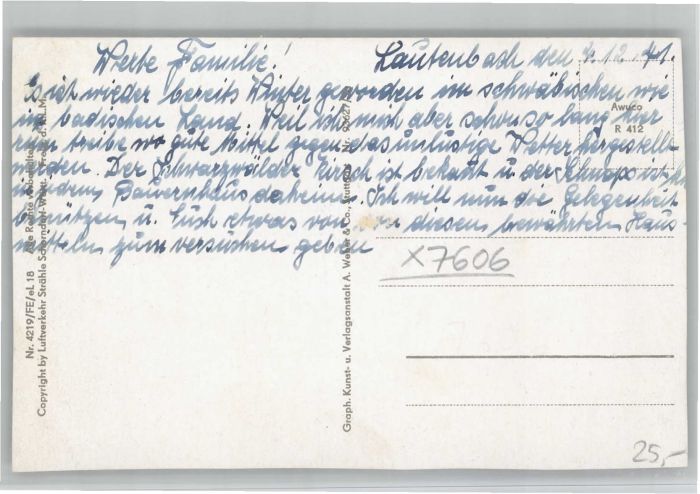 Werte Familie!
Lautenbach den 7.12.41.
's ist wieder bereits Winter geworden im schwäbischen wie
im badischen Land. Weil ich mich aber schon so lang hier
rum treibe wo gute Mittel gegen das unlustige Wetter hergestellt
werden. Der Schwarzwälder Kirsch ist bekannt u. der Schnaps ist
in jedem Bauernhaus daheim. Ich will nun die Gelegenheit
benützen u. Euch etwas von diesen bewährten Haus-
mitteln zum versuchen geben
Awuco
R 412
X7606
25,-
Nr. 4219/FE/eL 18
Copyright by Luftverkehr Strähle Schorndorf-Württ.
Graph. Kunst- u. Verlagsanstalt A. Weber & Co., Stuttgart